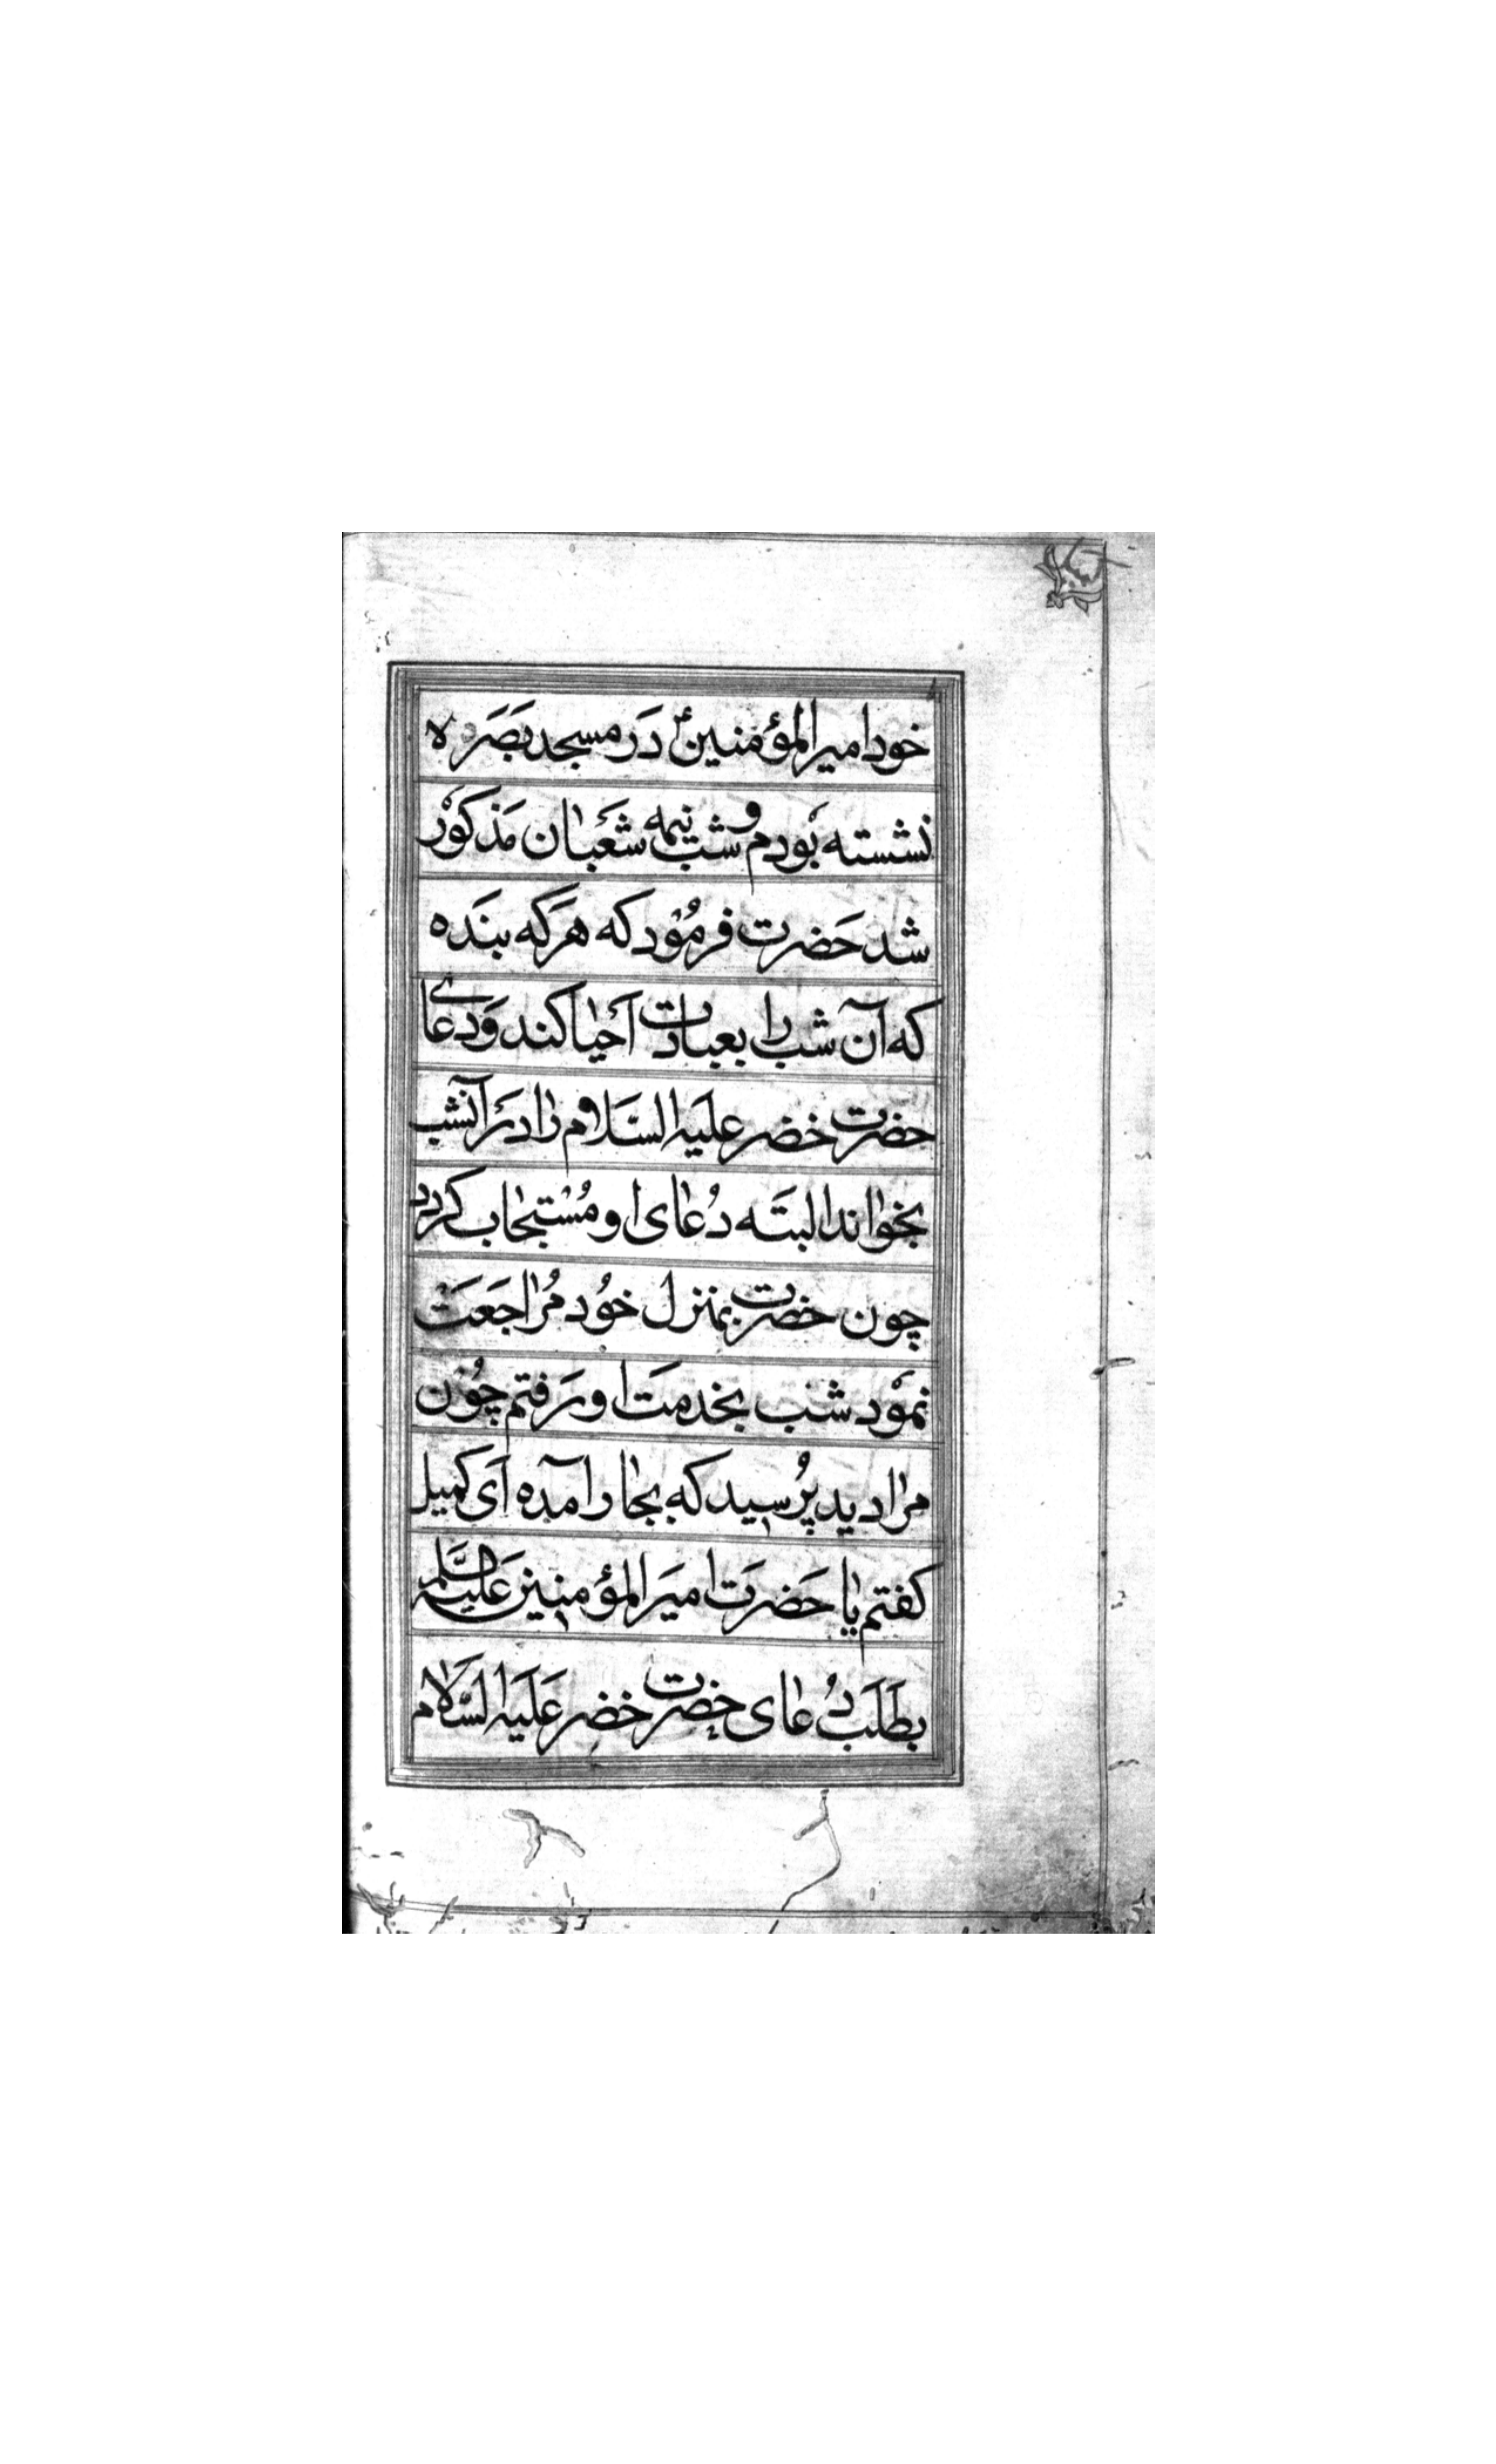 خود امیرالمؤمنینؑ دَر مسجد بَصَره
نشسته بودم و شب نیمه شَعبان مَذکور
شد حَضرت فرمُود که هَر که بنَده
که آن شب را بعبادت اَحیا کند وَ دعای
حضرت خضر علیَه السَّلام را دَر آنشب
بخواند البتَه دُعای او مُستجاب کردد
چون حضرت بمنزل خُود مُراجَعَت
نمود شب بخدمَت او رَفتم چُون
مرا دید پُرسید که بجا رامده اَی کمیل
کفتم یا حَضرَت امیَر المؤمنین عَلیه السَّلم
بطَلَب دُعای حضرت خضر عَلیَه السَّلام